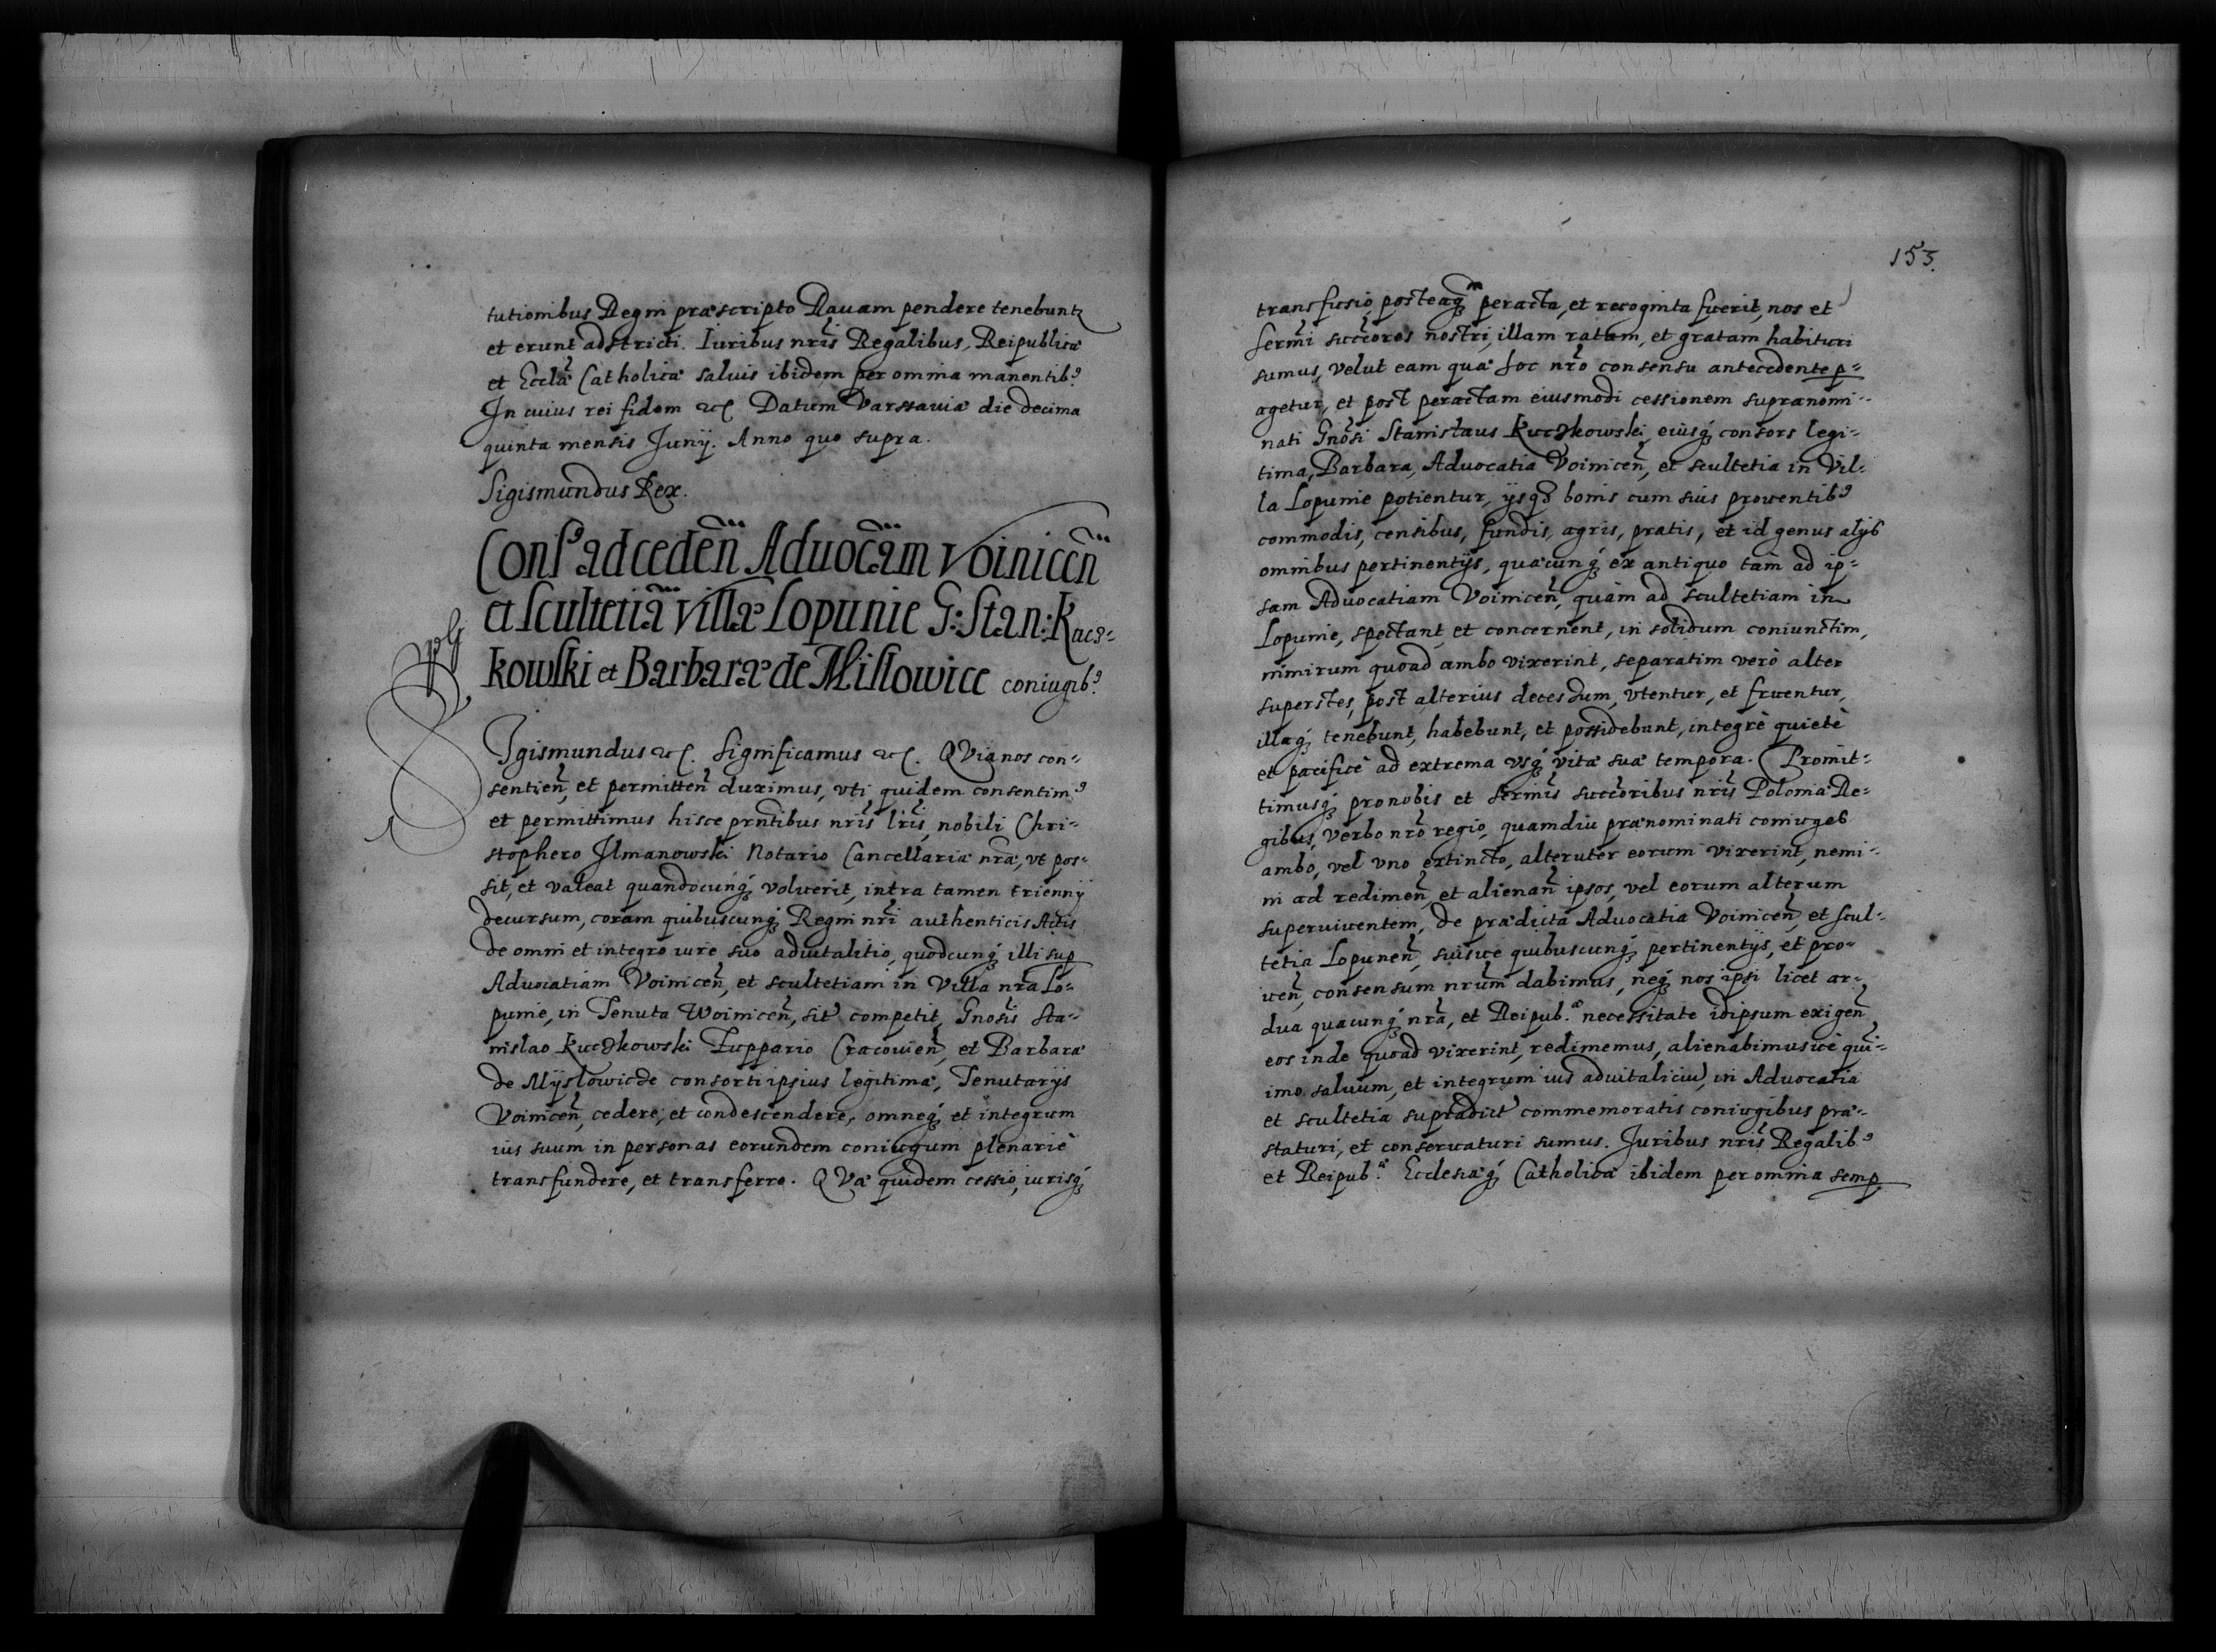 tutionibus Regni præscripto Ravam pendere tenebuntr
et erunt adstricti. Iuribus nris Regalibus, Reipublicæ
et Ecclæ Catholicæ saluis ibidem per omnia manentib9.
In cuius rei fidem etc. Datum Varssauiæ die decima
quinta mensis Junij. Anno quo supra.
Sigismundus Rex.
Cons9 ad ceden Aduocam Voinicen
et Scultetia Villæ Lopunie G: Stan: Kucz=
kowski et Barbaræ de Mislowice coniugib9.
SIgismundus etc. Significamus etc. QVia nos con=
sentien, et permitten duximus, vti quidem consentim9
et permittimus hisce prntibus nris lris, nobili Chri=
stophero Ilmanowski Notario Cancellariæ nræ, vt pos=
sit, et valeat quandocunq; voluerit, intra tamen triennij
decursum, coram quibuscunq; Regni nri authenticis Actis
de omni et integro iure suo aduitalitio, quodcunq; illi sup
Aduocatiam Voinicen, et scultetiam in Villa nra Lo=
punie, in Tenuta Woinicen, sit competit, Gnosis Sta=
nislao Kuczkowski Zuppario Cracouien, et Barbaræ
de Myslowicze consorti ipsius legitimæ, Tenutarijs
Voinicen, cedere, et condescendere, omneq; et integrum
ius suum in personas eorundem coniugum plenariè
transfundere, et transferre. QVæ quidem cessio, iurisq;
153.
transfusio, posteaq peracta, et recognita fuerit, nos et
sermi succores nostri, illam ratam, et gratam habituri
sumus, velut eam quæ hoc nro consensu antecedente p=
agetur, et post peractam eiusmodi cessionem supranomi=
nati Gnosi Stanislaus Kuczkowski, eiusq; consors legi=
tima, Barbara, Aduocatia Voinicen, et scultetia in Vil=
la Lopunie potientur, ijsq3 bonis cum suis prouentib9
commodis, censibus, fundis, agris, pratis, et id genus alijs
omnibus pertinentijs, quæcunq; ex antiquo tàm ad ip=
sam Aduocatiam Voinicen, quàm ad scultetiam in
Lopunie, spectant, et concernent, in solidum coniunctim,
nimirum quoad ambo vixerint, separatim verò alter
superstes, post alterius decessum, vtentur, et fruentur,
illaq; tenebunt, habebunt, et possidebunt, integrè quietè
et pacificè ad extrema vsq; vitæ suæ tempora. Promit=
timusq; pro nobis et sermis succoribus nris Poloniæ Re=
gibus, verbo nro regio, quamdiu prænominati coniuges
ambo, vel vno extincto, alteruter eorum vixerint, nemi=
ni ad redimen, et alienan ipsos, vel eorum alterum
superuiuentem, de prædicta Aduocatia Voinicen, et Scul=
tetia Lopunen, suisue quibuscunq; pertinentijs, et pro=
uen, consensum nrum dabimus, neq; nos ipsi licet ar=
dua quacunq; nra, et Reipub.æ necessitate idipsum exigen
eos inde quoad vixerint, redimemus, alienabimusuè qui=
imo saluum, et integrum ius aduitaliciu, in Aduocatia
et scultetia supradict commemoratis coniugibus præ=
staturi, et conseruaturi sumus. Juribus nris Regalib9
et Reipub.æ Ecclesiæq; Catholicæ ibidem per omnia semp